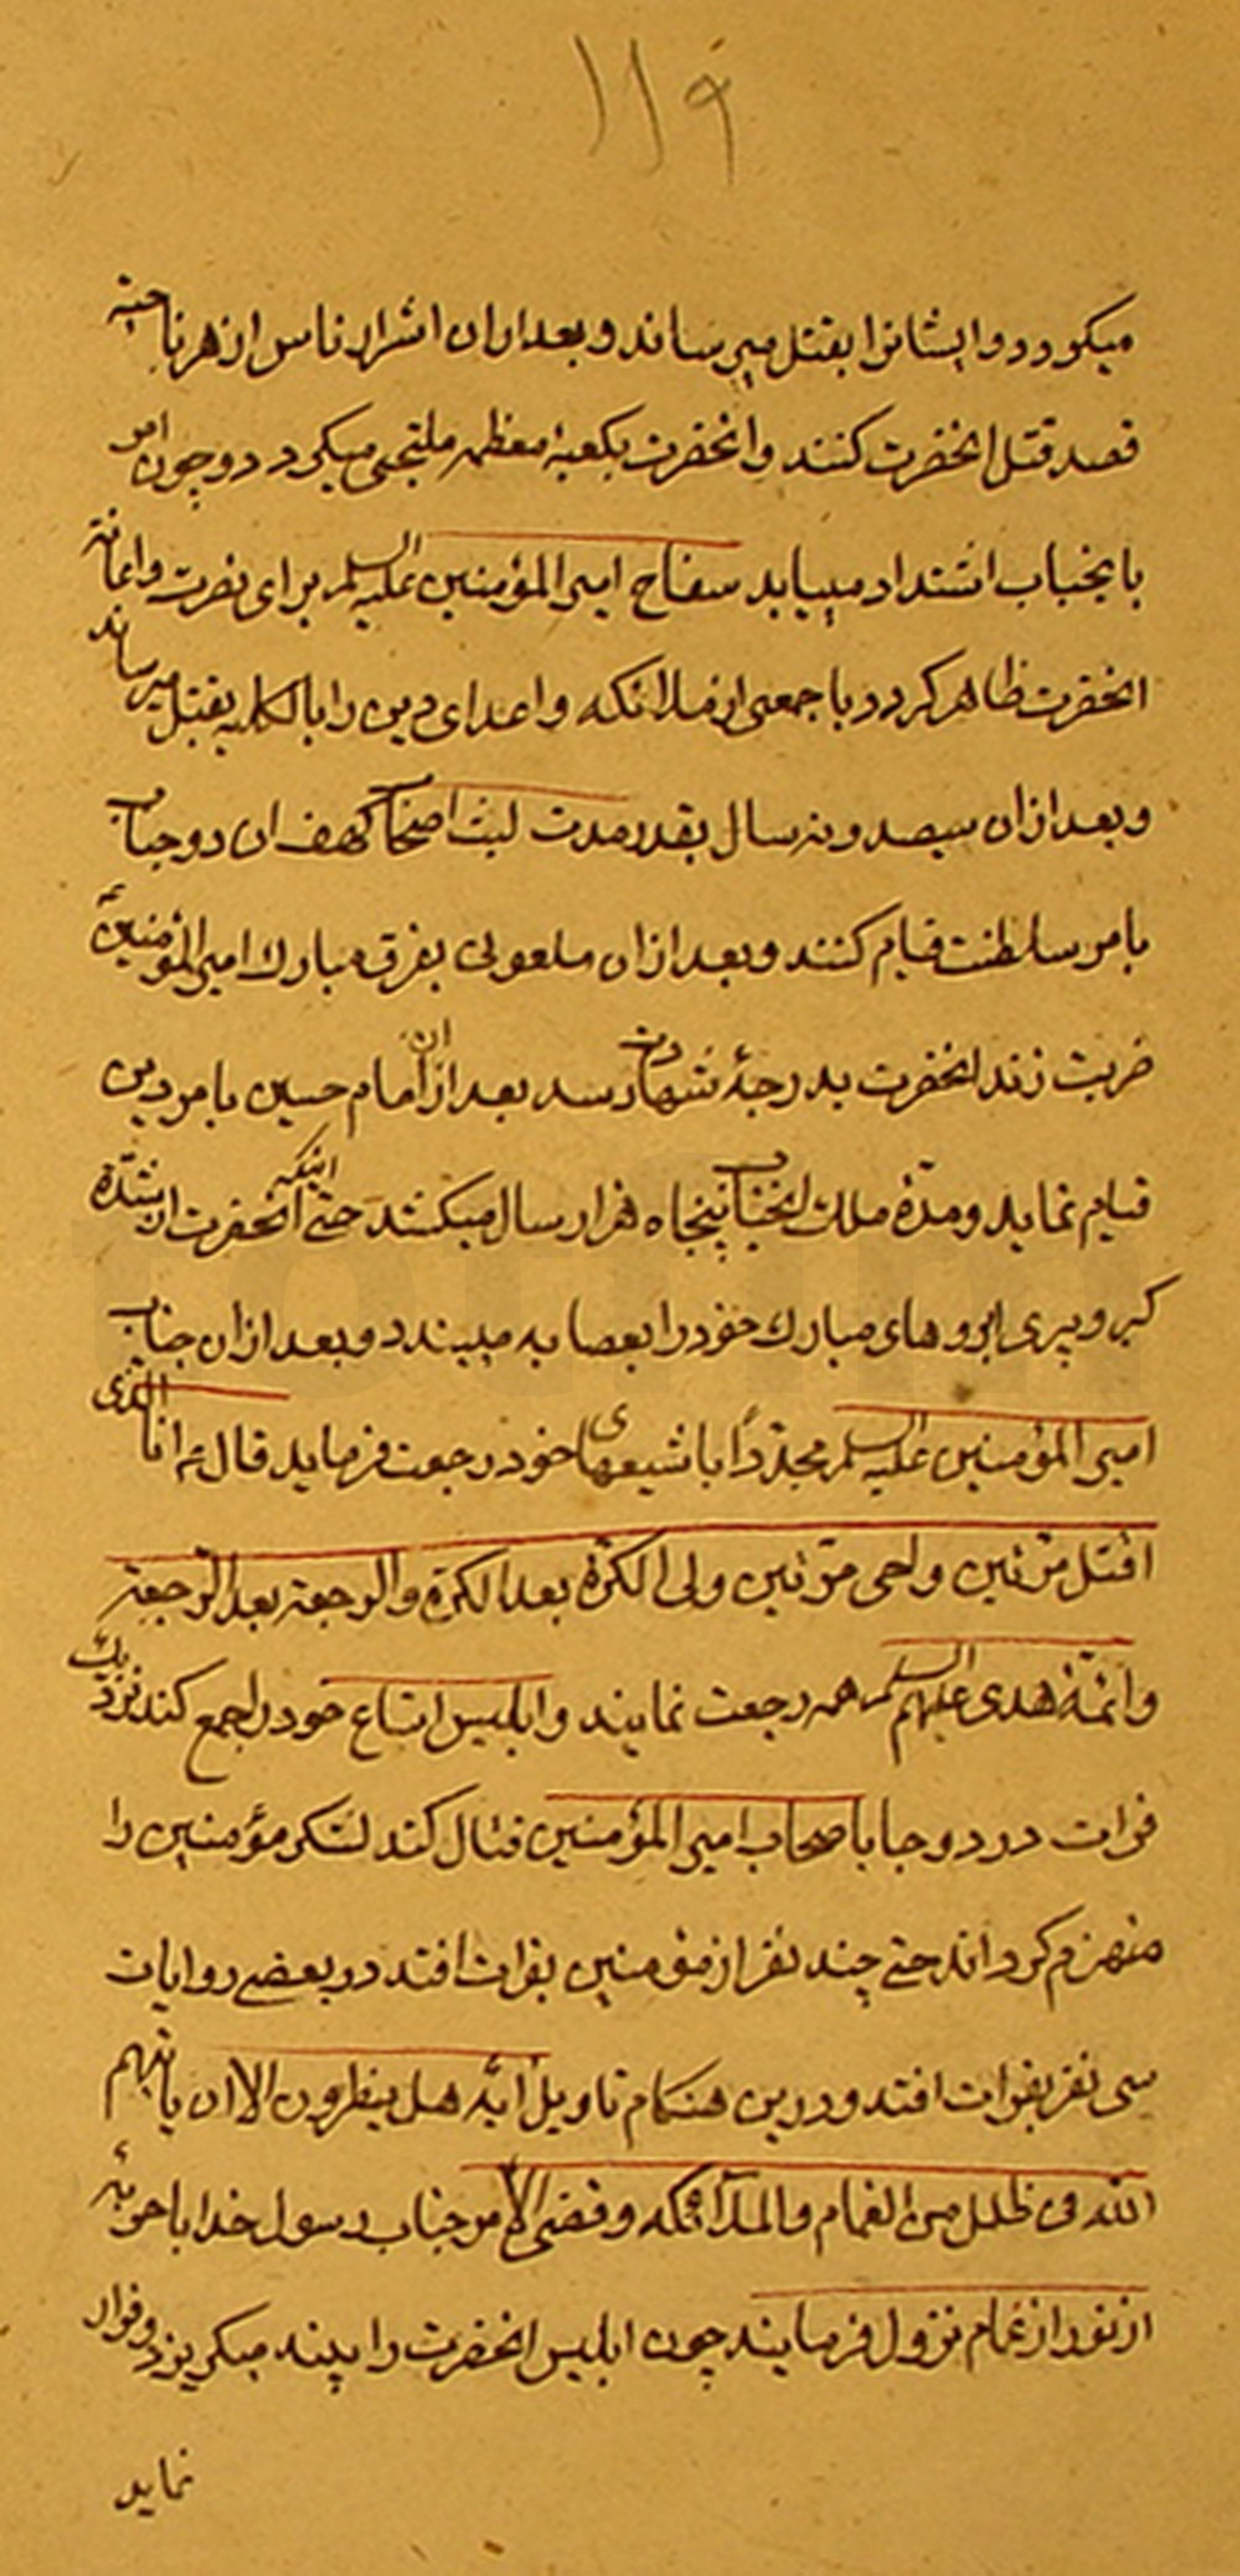 ۱۱۹
میکردد و ایشانرا بقتل میرساند و بعد از ان اشرار ناس از هر ناحیه
قصد قتل انحضرت کنند و انحضرت بکعبهٔ معظمه ملتجی میکردد و چون امر
بانجناب اشتداد مییابد سفاح امیرالمؤمنین علیه السلم برای نصرت و اعانة
انحضرت ظاهر کردد با جمعی از ملائکه و اعدای دین را بالکلیه بقتل میرساند
و بعد از ان سیصد و نه سال بقدر مدت لبث اصحاب کهف ان دو جناب
بامر سلطنت قیام کنند و بعد از ان ملعونی بفرق مبارك امیرالمؤمنین ع
ضربت زند انحضرت بدرجهٔ شهادت رسد بعد از ان امام حسین بامر دین
قیام نماید و مدّة ملك انجناب پنجاه هزار سال میکشد حتی اینکه انحضرت از شدّة
کبر و پیری ابروهای مبارك خود را بعصابه میبندد و بعد از ان جناب
امیرالمؤمنین علیه السلم مجدّداً با شیعهای خود رجعت فرماید قال ع انا الذی
اقتل مرّتین و احی مرّتین ولی الکرّة بعد الکرّة والرجعة بعد الرّجعة
وائمّهٔ هدی علیهم السلم همه رجعت نمایند و ابلیس اتباع خود را جمع کند نزدیك
فرات در دوحا با اصحاب امیرالمؤمنین قتال کند لشکر مؤمنین را
منهزم کرداند حتی چند نفر از مؤمنین بفرات افتد در بعضی روایات
سی نفر بفرات افتد و در این هنکام تاویل ایهٔ هل ینظرون الا ان یاتیهم
الله فی ظلل من الغمام والملآئکه وقضی الامر جناب رسول خدا با حربهٔ
از نور از غمام نزول فرمایند چون ابلیس انحضرت را بیند میکریزد و فرار
نماید